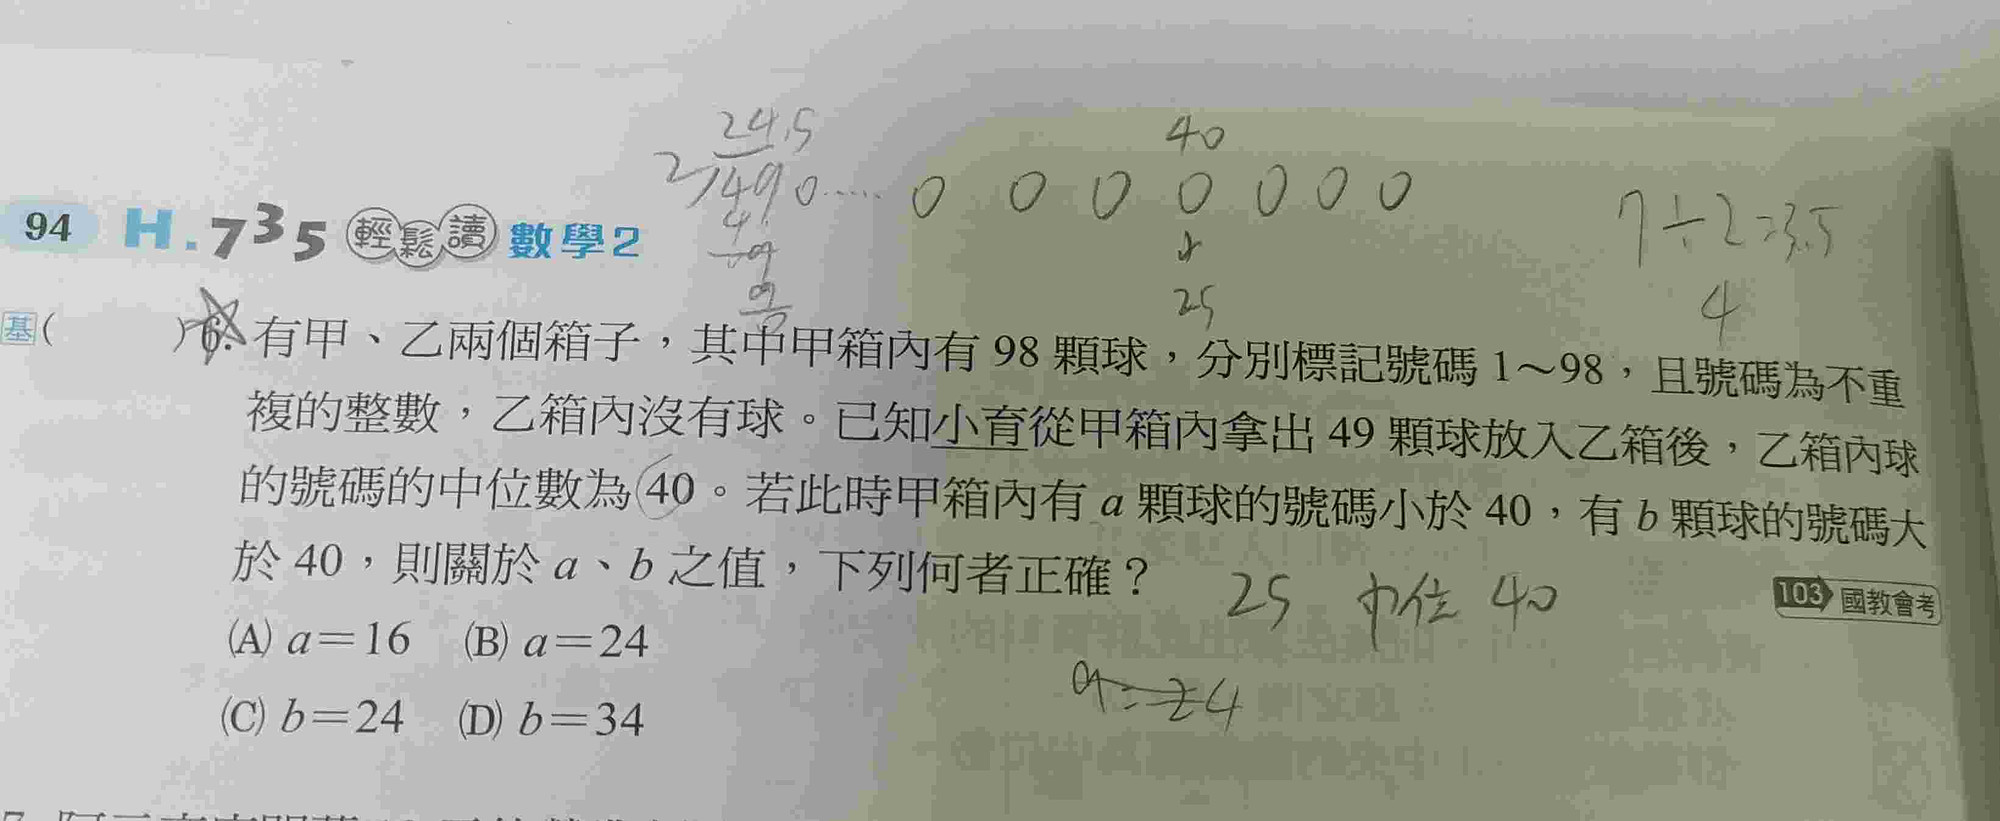 24.5
2 49 0 ..... 0 0 0 0 0 0 0
40
4
9
8
25
7÷2=3.5
4
94 H.735 輕鬆讀 數學2
基( )6. 有甲、乙兩個箱子，其中甲箱內有 98 顆球，分別標記號碼 1～98，且號碼為不重
複的整數，乙箱內沒有球。已知小育從甲箱內拿出 49 顆球放入乙箱後，乙箱內球
的號碼的中位數為 40。若此時甲箱內有 a 顆球的號碼小於 40，有 b 顆球的號碼大
於 40，則關於 a、b 之值，下列何者正確？
25 中位 40
103 國教會考
(A) a＝16 (B) a＝24
a=24
(C) b＝24 (D) b＝34